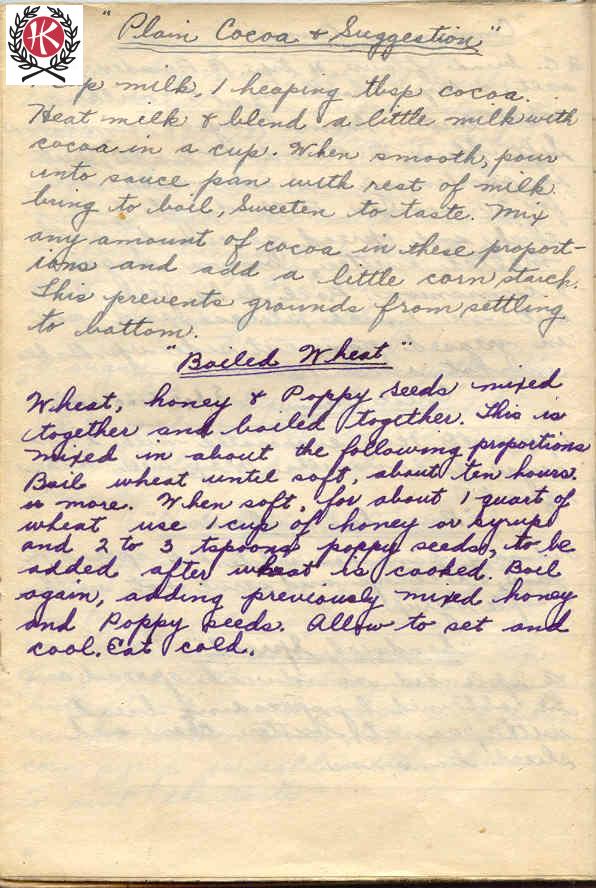 HK
"Plain Cocoa & Suggestion"
p milk, 1 heaping tbsp cocoa.
Heat milk & blend a little milk with
cocoa in a cup. When smooth, pour
into sauce pan with rest of milk
bring to boil, Sweeten to taste. Mix
any amount of cocoa in these proport-
ions and add a little corn starch.
This prevents grounds from settling
to bottom.
"Boiled Wheat"
Wheat, honey & Poppy seeds mixed
together and boiled together. This is
mixed in about the following proportions
Boil wheat until soft, about ten hours.
or more. When soft, for about 1 quart of
wheat use 1 cup of honey or syrup
and 2 to 3 tspoons poppy seeds, to be
added after wheat is cooked. Boil
again, adding previously mixed honey
and Poppy seeds. Allow to set and
cool. Eat cold.